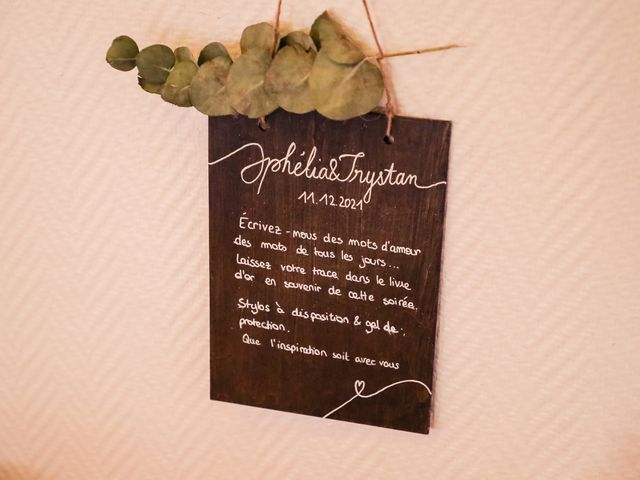 Ophélia&Trystan
11.12.2021
Écrivez-nous des mots d'amour
des mots de tous les jours...
Laissez votre trace dans le livre
d'or en souvenir de cette soirée.
Stylos à disposition & gel de
protection.
Que l'inspiration soit avec vous